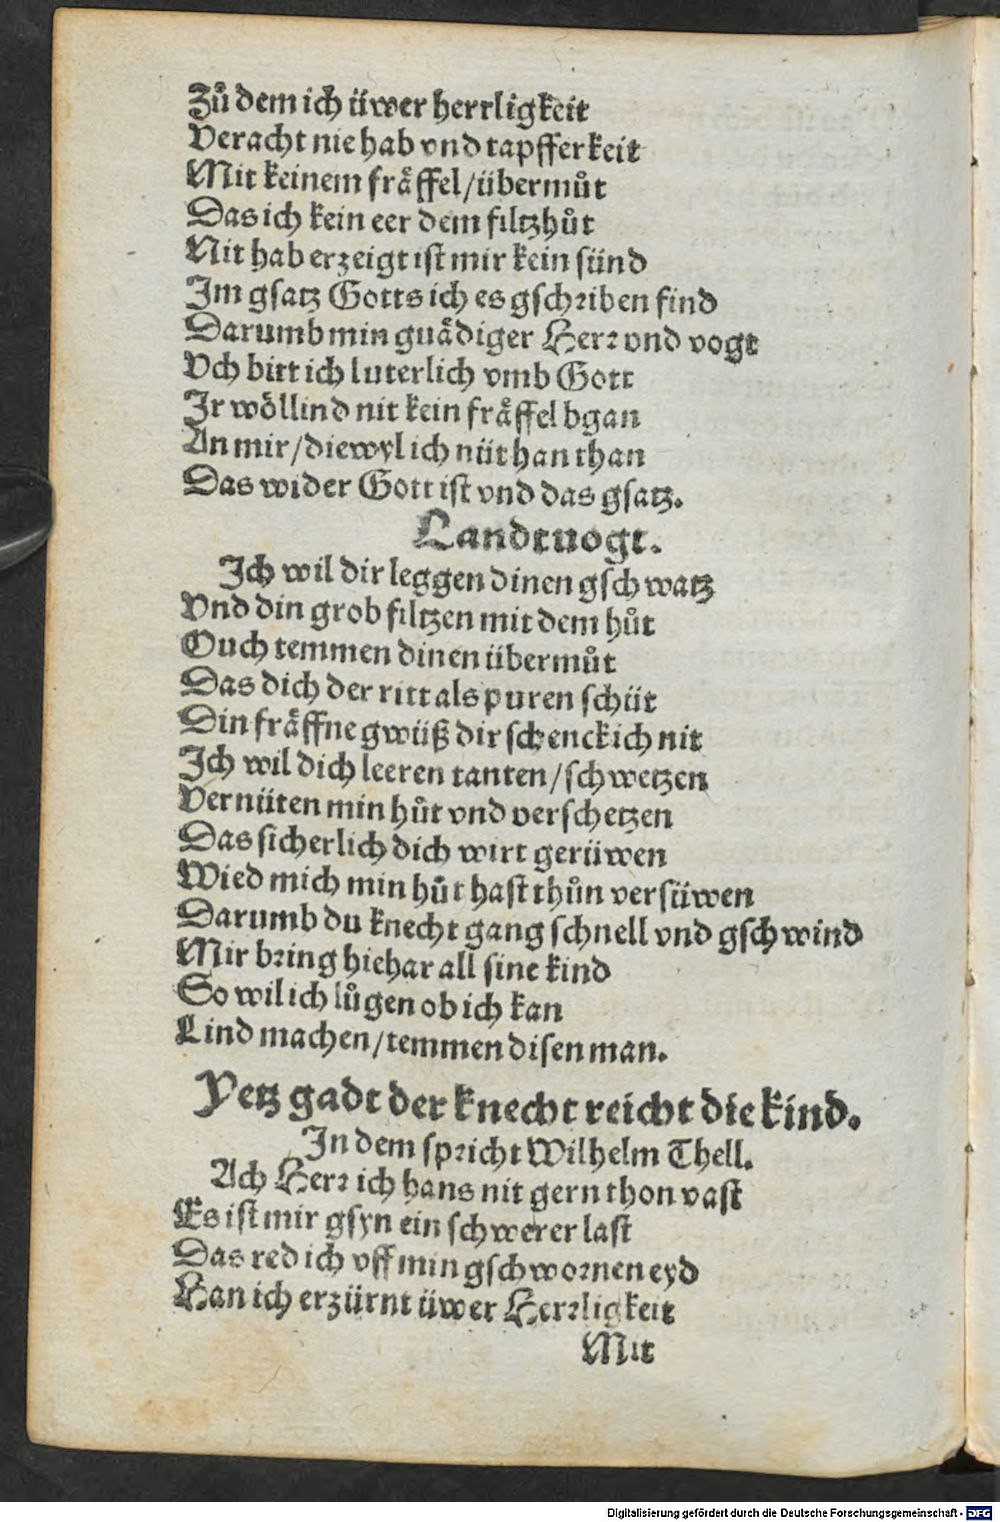 Zuͦ dem ich üwer herrligkeit
Veracht nie hab vnd tapfferkeit
Mit keinem fraͤffel/übermuͦt
Das ich kein eer dem filtzhuͦt
Nit hab erzeigt ist mir kein sünd
Im gsatz Gotts ich es gschriben find
Darumb min guaͤdiger Herr vnd vogt
Vch bitt ich luterlich vmb Gott
Ir woͤllind nit kein fraͤffel bgan
An mir/diewyl ich nüt han than
Das wider Gott ist vnd das gsatz.
Landtuogt.
Ich wil dir leggen dinen gschwatz
Vnd din grob filtzen mit dem huͦt
Ouch temmen dinen übermuͦt
Das dich der ritt als puren schüt
Din fraͤffne gwüß dir schenck ich nit
Ich wil dich leeren tanten/schwetzen
Vernüten min huͦt vnd verschetzen
Das sicherlich dich wirt gerüwen
Wied mich min huͦt hast thuͦn versüwen
Darumb du knecht gang schnell vnd gschwind
Mir bring hiehar all sine kind
So wil ich luͦgen ob ich kan
Lind machen/temmen disen man.
Yetz gadt der knecht reicht die kind.
In dem spricht Wilhelm Thell.
Ach Herr ich hans nit gern thon vast
Es ist mir gsyn ein schwerer last
Das red ich vff min gschwornen eyd
Han ich erzürnt üwer Herrligkeit
Mit
Digitalisierung gefördert durch die Deutsche Forschungsgemeinschaft - DFG